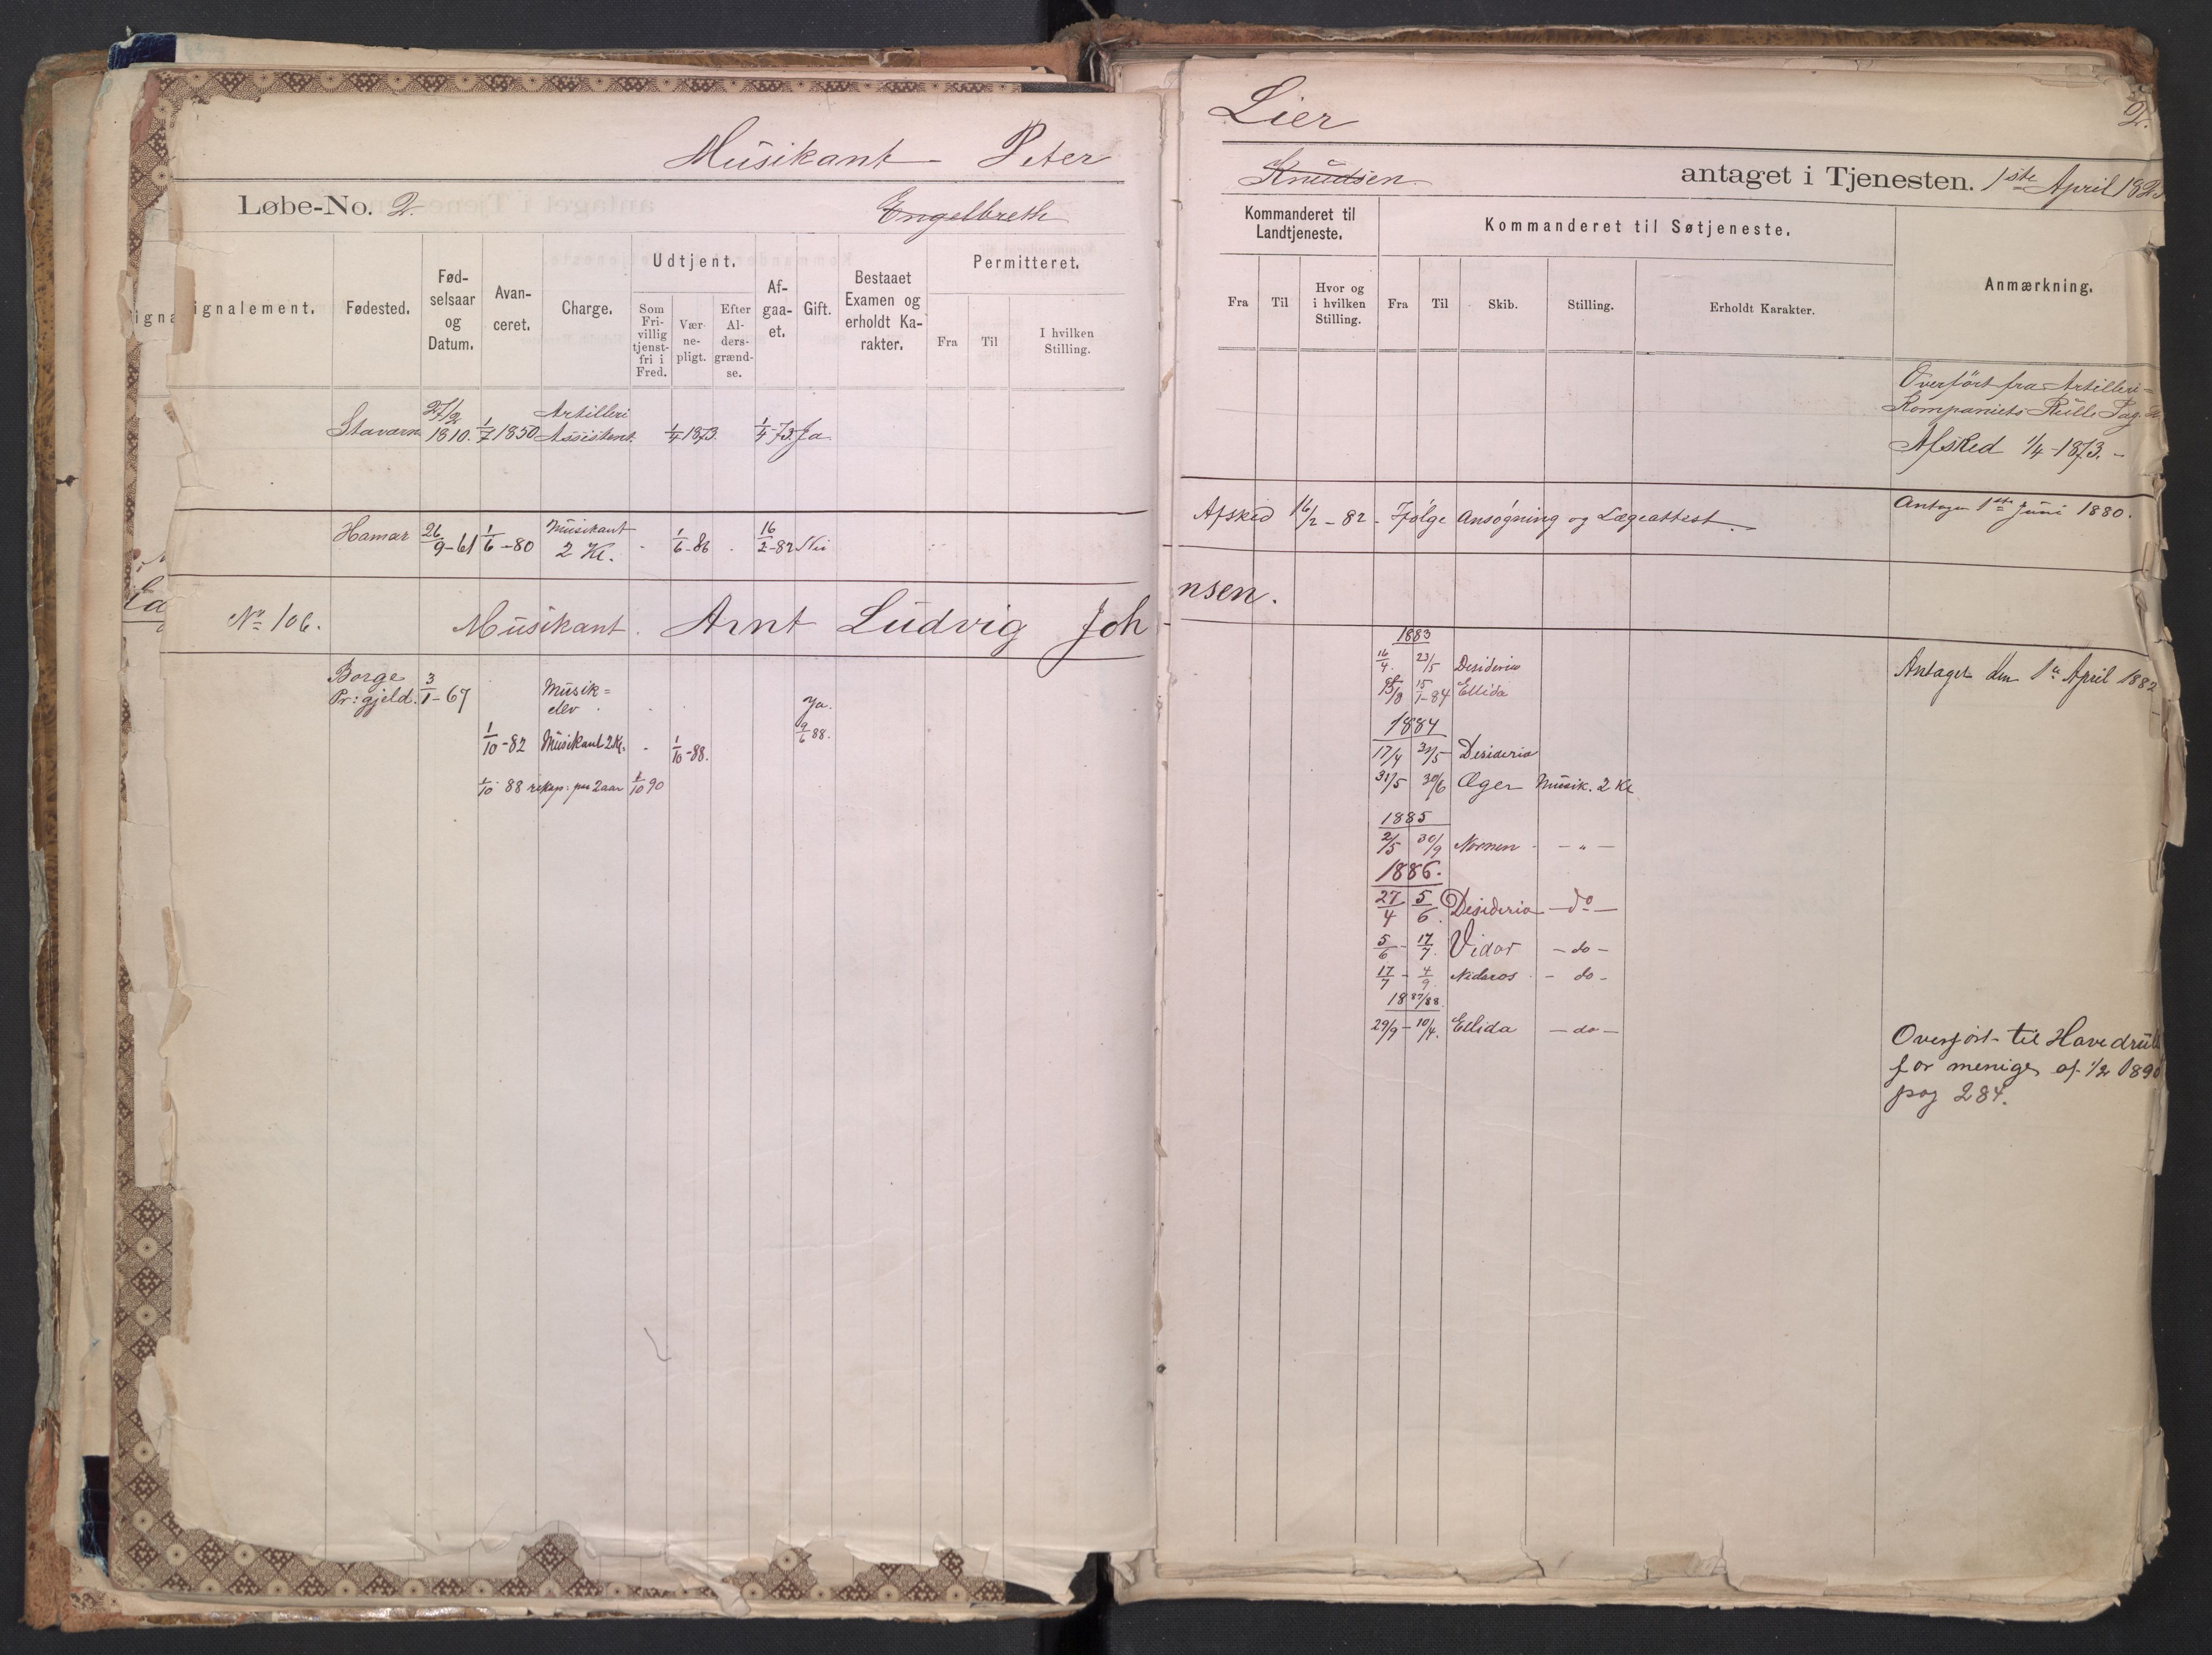 Musikant - Peter
Løbe-No. 2.
Engelbreth
ignalement.
Fødested.
Fød-
selsaar
og
Datum.
Avan-
ceret.
Charge.
Udtjent.
Som
Fri-
villig
tjenst-
fri i
Fred.
Vær-
ne-
pligt.
Efter
Al-
ders-
grænd-
se.
Af-
gaa-
et.
Gift.
Bestaaet
Examen og
erholdt Ka-
rakter.
Permitteret.
Fra
Til
I hvilken
Stilling.
27/2 Artilleri
Staværn 1810. 1/7 1850 Assistent. 1/4 1873. 1/4-73. Ja.
Hamar 26/9-61 1/6-80 Musikant
2 Kl. - 1/6-86 - 16/2-82 Nei
No 106. Musikant. Arnt Ludvig Joh
Borge
Pr: gjeld. 3/1-67 Musik=
elev Ja.
1/10-82 Musikant 2 Kl. - 1/10-88. 9/6 88.
1/10 88 rekap: paa 2 aar 1/10 90
Lier
2.
Knudsen. antaget i Tjenesten. 1ste April
Kommanderet til
Landtjeneste.
Kommanderet til Søtjeneste.
Anmærkning.
Fra
Til
Hvor og
i hvilken
Stilling.
Fra
Til
Skib.
Stilling.
Erholdt Karakter.
Overført fra Artilleri=
Kompaniets Rulle Pag.
Afsked 1/4-1873. -
Afsked 16/2-82. Ifølge Ansøgning og Lægeattest.
Antagen 1ste Juni 1880.
nsen.
1883
16/4. 23/5 Desideria
Antaget den 1ste April 1882
15/1-84 Ellida
1884
17/4 31/5 Desideria
31/5 30/6 Æger Musik. 2 Kl
1885
2/5 30/9 Nornen - " -
1886.
27/4 5/6. Desideria - do -
5/6 - 17/7. Vidar - do -
17/7 - 4/9. Nidaros - do -
18 87/88.
29/9 - 10/4. Ellida - do -
Overført til Hovedrull
for menige af 1/2 1890
pag 284.